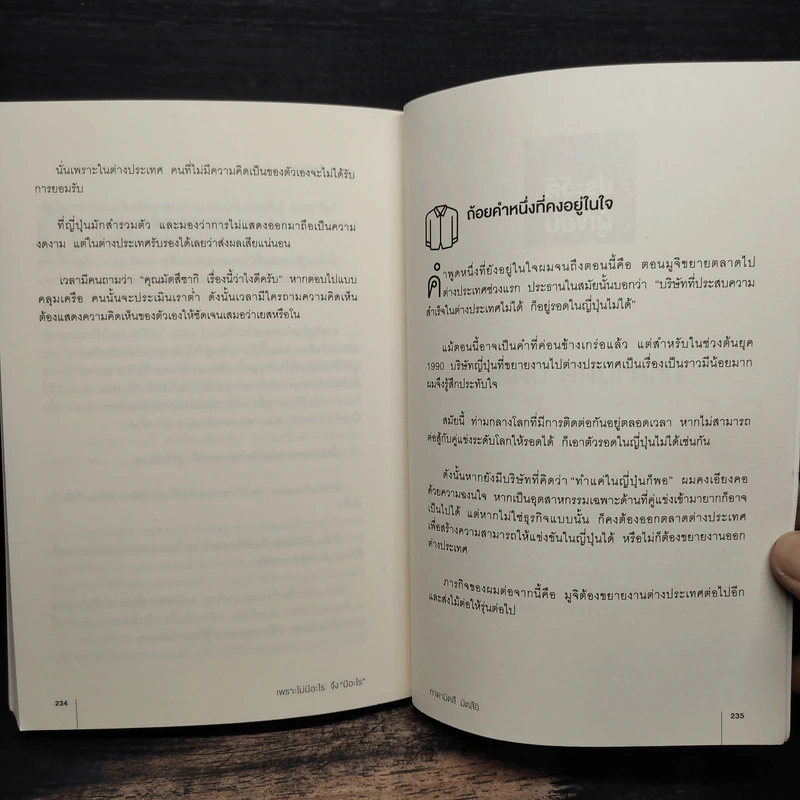 นั่นเพราะในต่างประเทศ คนที่ไม่มีความคิดเป็นของตัวเองจะไม่ได้รับ
การยอมรับ
ที่ญี่ปุ่นมักสำรวมตัว และมองว่าการไม่แสดงออกมาถือเป็นความ
งดงาม แต่ในต่างประเทศรับรองได้เลยว่าส่งผลเสียแน่นอน
เวลามีคนถามว่า "คุณมัตสึซากิ เรื่องนี้ว่าไงดีครับ" หากตอบไปแบบ
คลุมเครือ คนนั้นจะประเมินเราต่ำ ดังนั้นเวลามีใครถามความคิดเห็น
ต้องแสดงความคิดเห็นของตัวเองให้ชัดเจนเสมอว่าเยสหรือโน
เพราะไม่มีอะไร จึง "มีอะไร"
234
ถ้อยคำหนึ่งที่คงอยู่ในใจ
คำพูดหนึ่งที่ยังอยู่ในใจผมจนถึงตอนนี้คือ ตอนมูจิขยายตลาดไป
ต่างประเทศช่วงแรก ประธานในสมัยนั้นบอกว่า "บริษัทที่ประสบความ
สำเร็จในต่างประเทศไม่ได้ ก็อยู่รอดในญี่ปุ่นไม่ได้"
แม้ตอนนี้อาจเป็นคำที่ค่อนข้างเกร่อแล้ว แต่สำหรับในช่วงต้นยุค
1990 บริษัทญี่ปุ่นที่ขยายงานไปต่างประเทศเป็นเรื่องเป็นราวมีน้อยมาก
ผมจึงรู้สึกประทับใจ
สมัยนี้ ท่ามกลางโลกที่มีการติดต่อกันอยู่ตลอดเวลา หากไม่สามารถ
ต่อสู้กับคู่แข่งระดับโลกให้รอดได้ ก็เอาตัวรอดในญี่ปุ่นไม่ได้เช่นกัน
ดังนั้นหากยังมีบริษัทที่คิดว่า "ทำแค่ในญี่ปุ่นก็พอ" ผมคงเอียงคอ
ด้วยความฉงนใจ หากเป็นอุตสาหกรรมเฉพาะด้านที่คู่แข่งเข้ามายากก็อาจ
เป็นไปได้ แต่หากไม่ใช่ธุรกิจแบบนั้น ก็คงต้องออกตลาดต่างประเทศ
เพื่อสร้างความสามารถให้แข่งขันในญี่ปุ่นได้ หรือไม่ก็ต้องขยายงานออก
ต่างประเทศ
ภารกิจของผมต่อจากนี้คือ มูจิต้องขยายงานต่างประเทศต่อไปอีก
และส่งไม้ต่อให้รุ่นต่อไป
ทาดามิตสึ มัตสึอิ
235